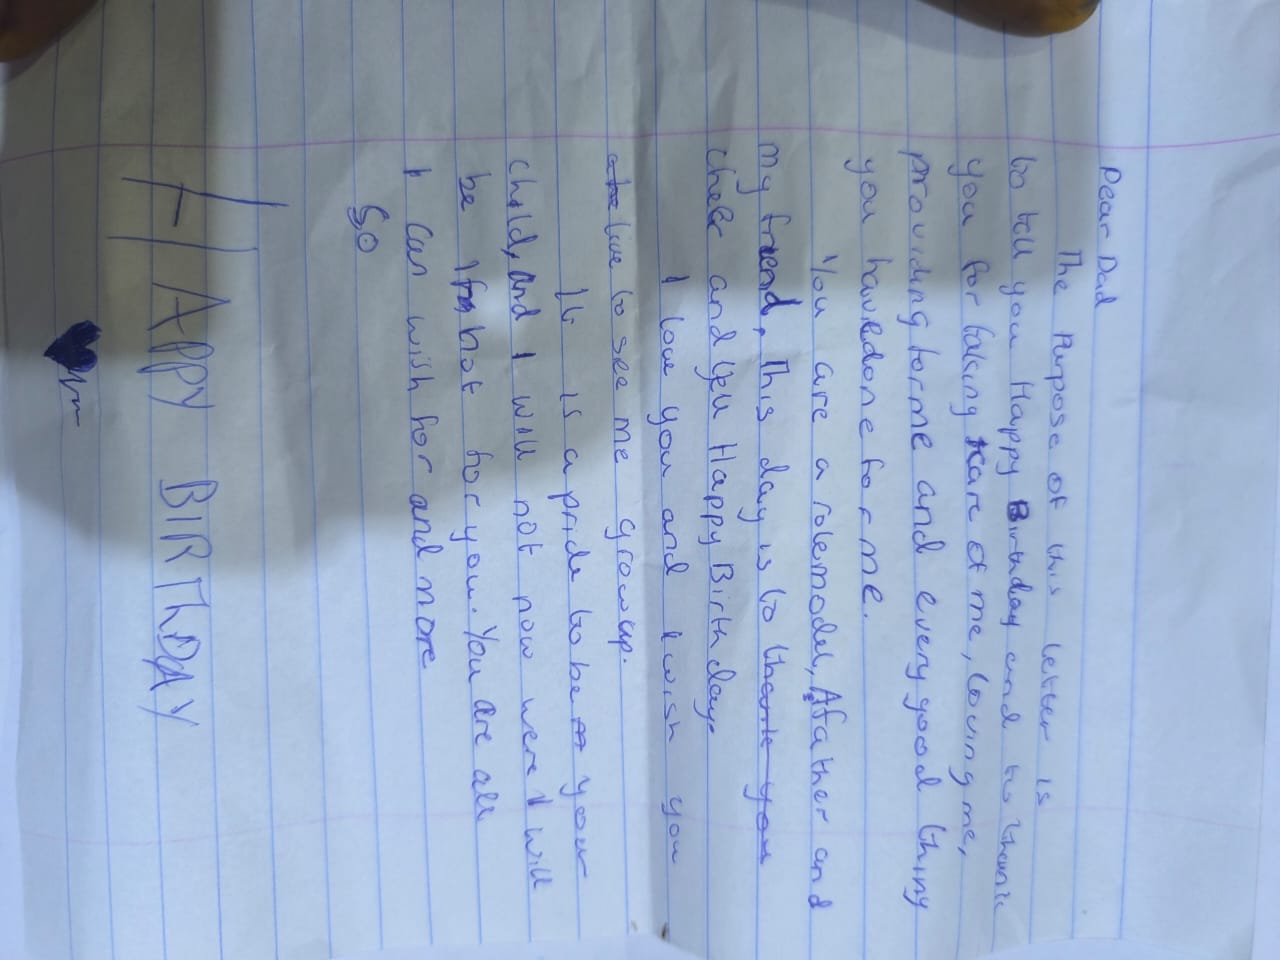 Dear Dad
The Purpose of this letter is
to tell you Happy Birthday and to thank
you for taking kare of me, loving me,
providing for me and every good thing
you have done for me.
You are a rolemodel, A father and
my friend, This day is to thank you
and tell Happy Birthday.
I love you and I wish you
live to see me grow up.
It is a pride to be your
child, and I will not now were I will
be If not for you. You are all
I can wish for and more
So
HAPPY BIRThDAY